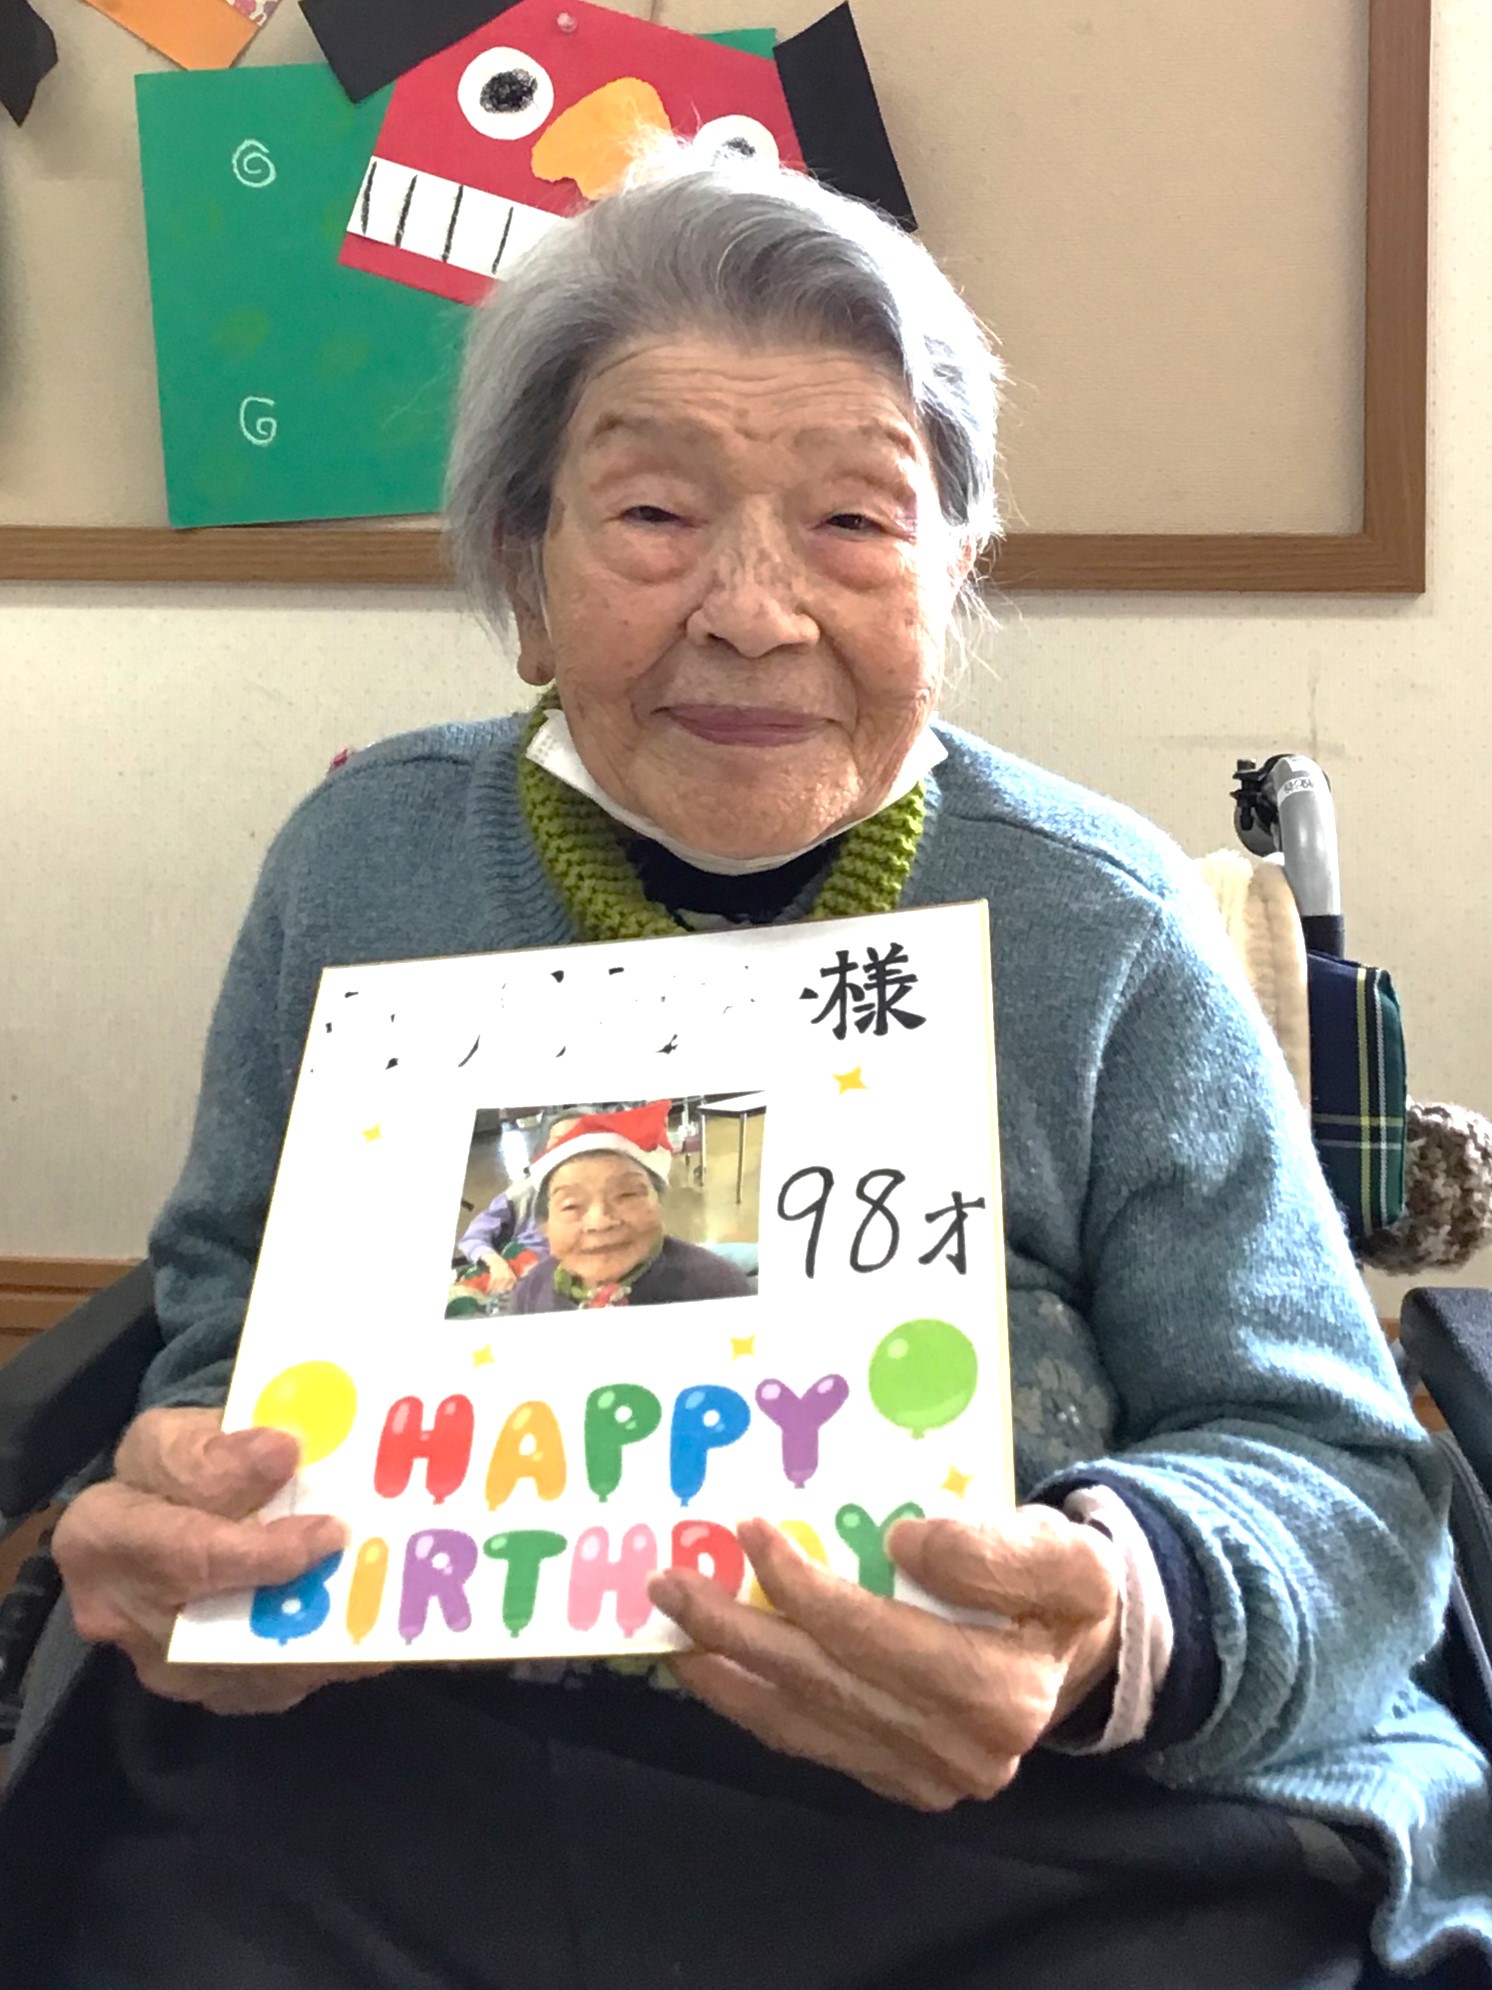 様
98才
HAPPY
BIRTHDAY